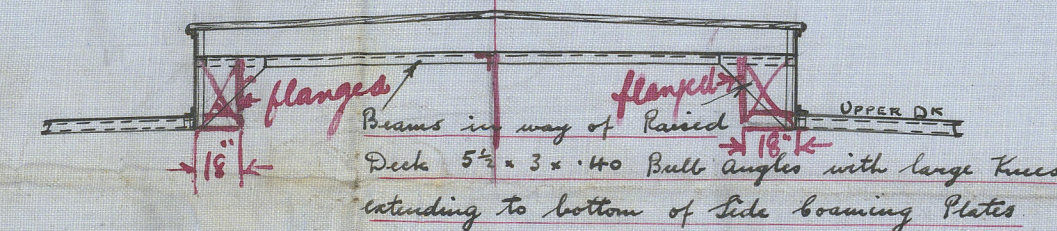 flanged
flanged
UPPER DK
Beams in way of Raised
Deck 5½ x 3 x .40 Bulb Angles with large Knees
extending to bottom of Side Coaming Plates
18"
18"